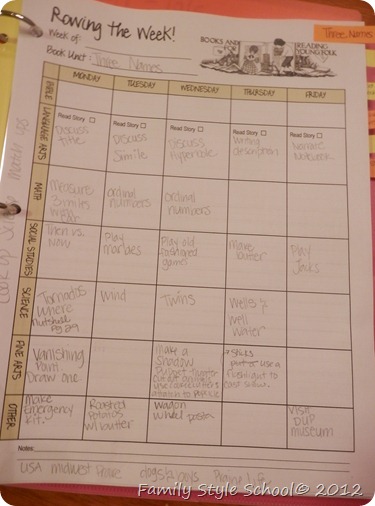 Rowing the Week!
Week of:
Book Unit: Three Names
BOOKS AND READING
FOR YOUNG FOLK
Three Names
MONDAY TUESDAY WEDNESDAY THURSDAY FRIDAY
BIBLE
LANGUAGE ARTS
Read Story Read Story Read Story Read Story Read Story
Discuss Title
Discuss Simile
Discuss Hyperbole
Writing description
Notebook
MATH
Measure 3 miles
ordinal numbers
ordinal numbers
SOCIAL STUDIES
Then vs. Now
Play marbles
Play old fashioned games
Make butter
Play Jacks
SCIENCE
Tornados Where
nutshell
Wind
Twins
Wells & well water
FINE ARTS
Vanishing Point Draw one
make a Shadow
use a flashlight to
OTHER
Make Emergency Kit.
Roasted Potatos w/ butter
Wagon wheel pasta
Visit our museum
Notes:
USA Midwest Prairie dogs & boys
Family Style School© 2012